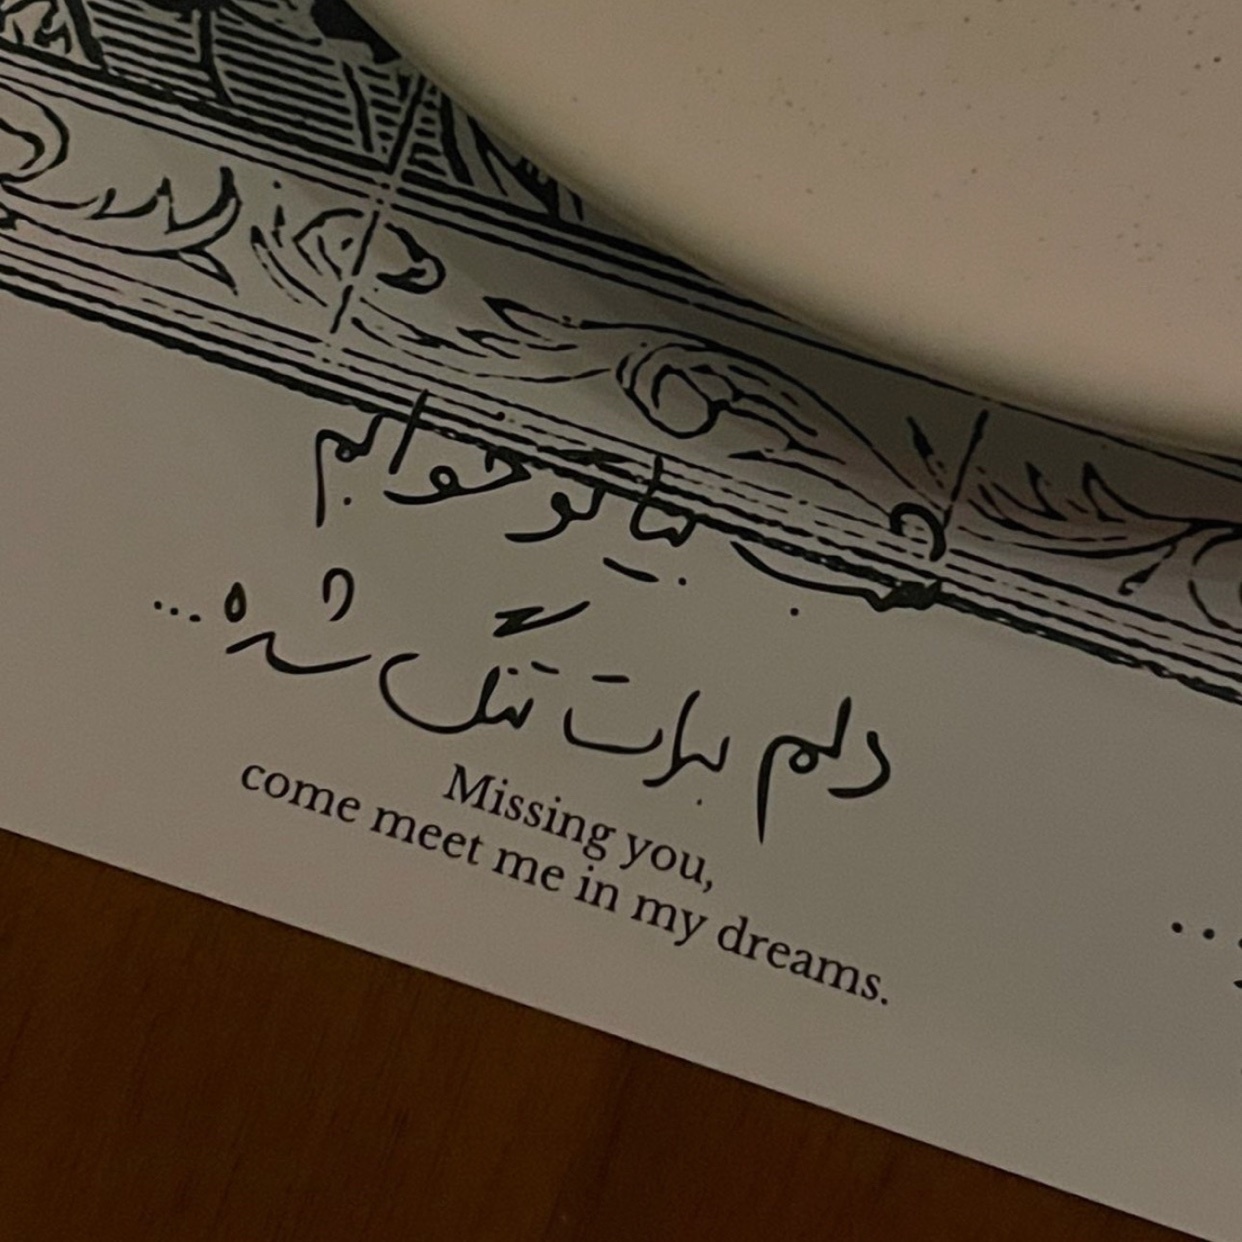 شب بیا تو خوابم
دلم برات تنگ شده...
Missing you,
come meet me in my dreams.